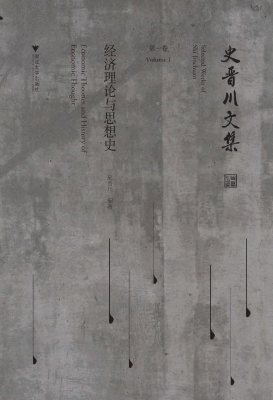 史晋川文集
Selected Works of
Shi Jinchuan
第一卷
Volume I
经济理论与思想史
Economic Theories and History of
Economic Thought
浙江大学出版社